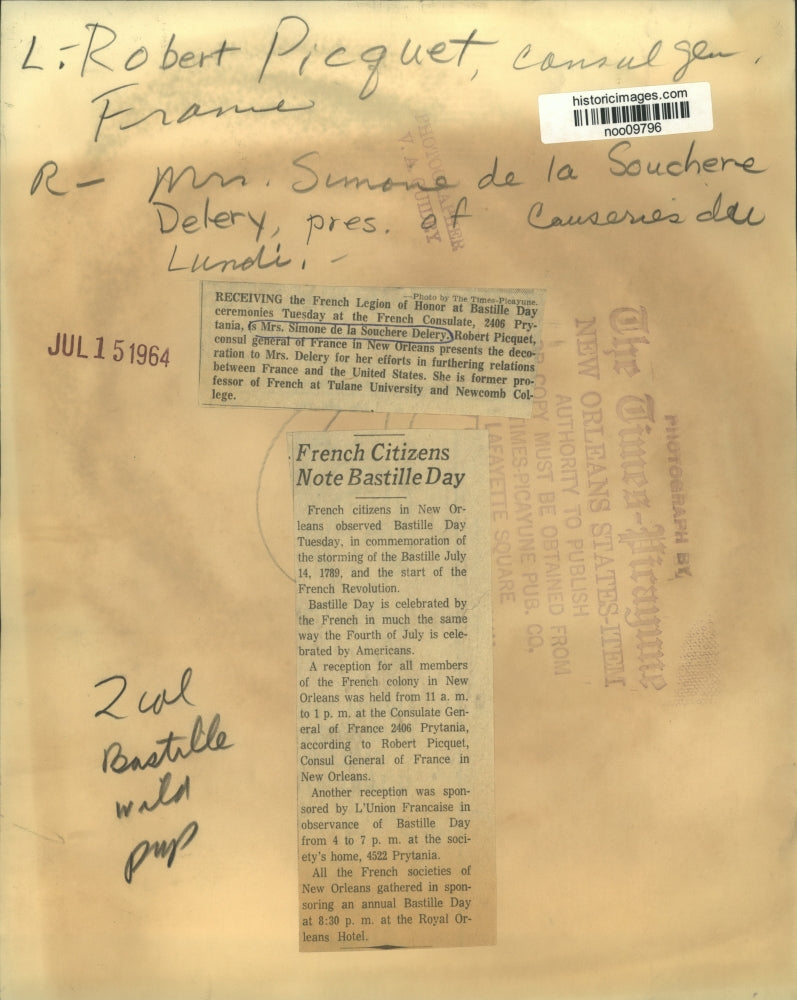 L:- Robert Picquet, consul gen.
France
historicimages.com
noo09796
R- Mrs. Simone de la Souchere
Delery, pres. of Causeries du
Lundi. -
PHOTOGRAPHER
V. A. GUIDRY
JUL 15 1964
—Photo by The Times-Picayune.
RECEIVING the French Legion of Honor at Bastille Day
ceremonies Tuesday at the French Consulate, 2406 Pry-
tania, is Mrs. Simone de la Souchere Delery. Robert Picquet,
consul general of France in New Orleans presents the deco-
ration to Mrs. Delery for her efforts in furthering relations
between France and the United States. She is former pro-
fessor of French at Tulane University and Newcomb Col-
lege.
French Citizens
Note Bastille Day
French citizens in New Or-
leans observed Bastille Day
Tuesday, in commemoration of
the storming of the Bastille July
14, 1789, and the start of the
French Revolution.
Bastille Day is celebrated by
the French in much the same
way the Fourth of July is cele-
brated by Americans.
A reception for all members
of the French colony in New
Orleans was held from 11 a. m.
to 1 p. m. at the Consulate Gen-
eral of France 2406 Prytania,
according to Robert Picquet,
Consul General of France in
New Orleans.
Another reception was spon-
sored by L'Union Francaise in
observance of Bastille Day
from 4 to 7 p. m. at the soci-
ety's home, 4522 Prytania.
All the French societies of
New Orleans gathered in spon-
soring an annual Bastille Day
at 8:30 p. m. at the Royal Or-
leans Hotel.
PHOTOGRAPH BY
The Times-Picayune
NEW ORLEANS STATES-ITEM
AUTHORITY TO PUBLISH
COPY MUST BE OBTAINED FROM
TIMES-PICAYUNE PUB. CO.
LAFAYETTE SQUARE
2 col
Bastille